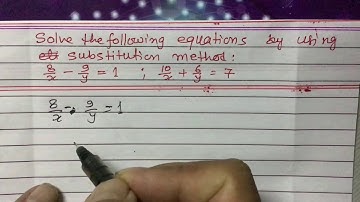 Solve the following equations by using
substitution method:
8/x - 9/y = 1 ; 10/x + 6/y = 7
8/x - 9/y = 1